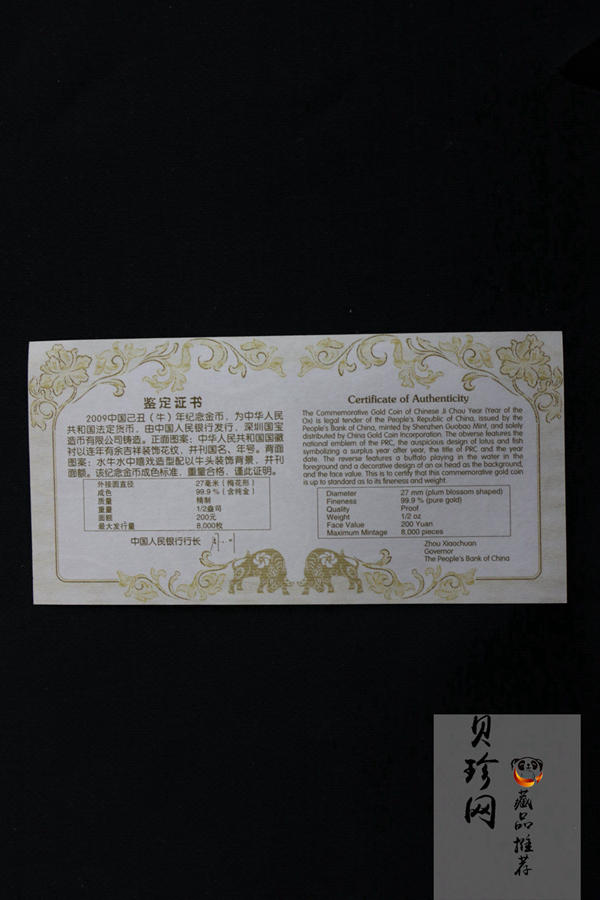 鉴定证书
2009中国己丑（牛）年纪念金币，为中华人民
共和国法定货币，由中国人民银行发行，深圳国宝
造币有限公司铸造。正面图案：中华人民共和国国徽
衬以连年有余吉祥装饰花纹，并刊国名、年号。背面
图案：水牛水中嬉戏造型配以牛头装饰背景，并刊
面额。该纪念金币成色标准，重量合格，谨此证明。
外接圆直径 27毫米（梅花形）
成色 99.9%（含纯金）
质量 精制
重量 1/2盎司
面额 200元
最大发行量 8,000枚
中国人民银行行长
Certificate of Authenticity
The Commemorative Gold Coin of Chinese Ji Chou Year (Year of the
Ox) is legal tender of the People's, Republic of China, issued by the
People's Bank of China, minted by Shenzhen Guobao Mint, and solely
distributed by China Gold Coin Incorporation. The obverse features the
national emblem of the PRC, the auspicious design of lotus and fish
symbolizing a surplus year after year, the title of PRC and the year
date. The reverse features a buffalo playing in the water in the
foreground and a decorative design of an ox head as the background,
and the face value. This is to certify that this commemorative gold coin
is up to standard as to its fineness and weight.
Diameter 27 mm (plum blossom shaped)
Fineness 99.9 % (pure gold)
Quality Proof
Weight 1/2 oz
Face Value 200 Yuan
Maximum Mintage 8,000 pieces
Zhou Xiaochuan
Governor
The People's Bank of China
贝珍网
藏品推荐